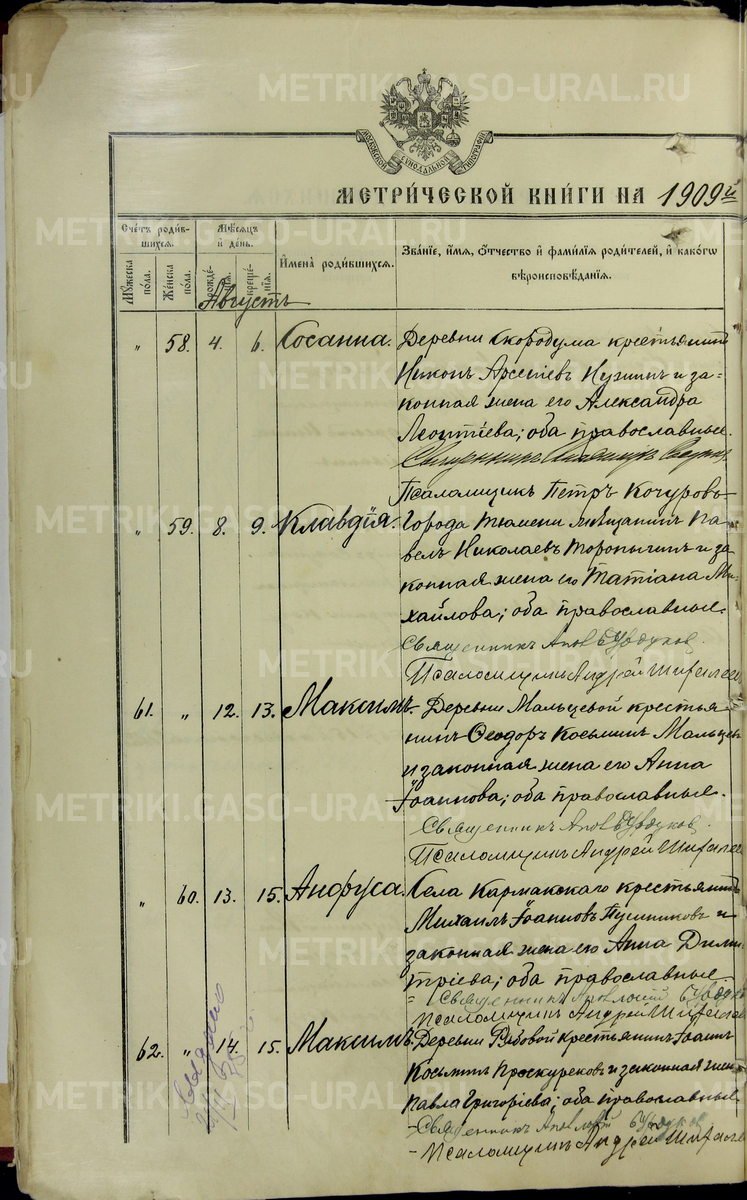 METRIKI.GASO-URAL.RU
МОСКОВСКОЙ СѴНОДАЛЬНОЙ ТИПОГРАФІИ
МЕТРИ́ЧЕСКОЙ КНИ́ГИ НА 1909й
Счетъ роди́вшихся.
Мꙋжеска по́ла.
Же́нска по́ла.
Мѣ́сяцъ и҆ де́нь.
рожде́нія.
креще́нія.
И҆мена̀ роди́вшихся.
Зва́нїе, и҆́мя, ѻ҆́тчество и҆ фами́лїѧ роди́телей, и҆ како́гѡ
вѣроисповѣ́данїѧ.
Августъ
" 58. 4. 6. Сосанна. Деревни Скородума крестьянинъ
Никонъ Арсеніевъ и за=
конная жена его Александра
Леонтіева; оба православные.
Священникъ
Псаломщикъ Петръ Кочуровъ
" 59. 8. 9. Клавдія. Города Тюмени мѣщанинъ Па
велъ Николаевъ Торопыгинъ и за
конная жена его Татіана Ми
хайлова; оба православные.
Священникъ
Псаломщикъ Андрей
61. " 12. 13. Максимъ. Деревни Мальцевой крестья
нинъ Ѳеодоръ Косьминъ Мальцев
и законная жена его Анна
Іоаннова; оба православные.
Священникъ
Псаломщикъ Андрей
" 60. 13. 15. Анфуса. Села Кармакскаго крестьянинъ
Михаилъ Іоанновъ Пушников и
законная жена его Анна Дими
тріева; оба православные
Священникъ
Псаломщикъ Андрей
62. " 14. 15. Максимъ. Деревни Рябовой крестьянинъ Іоаннъ
Косьминъ Проскурековъ и законная жен
Павла Григоріева; оба православные
Священникъ
Псаломщикъ Андрей